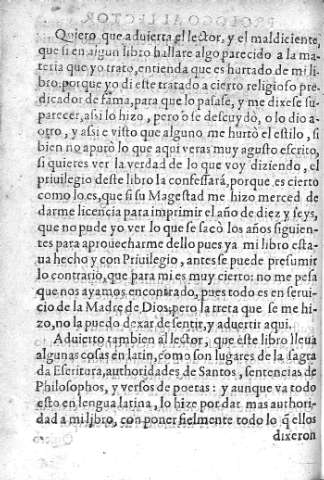 Quiero que aduierta el lector, y el maldiciente,
que si en algun libro hallare algo parecido a la ma-
teria que yo trato, entienda que es hurtado de mi li-
bro: porque yo di este tratado a cierto religioso pre-
dicador de fama, para que lo pasase, y me dixese su
parecer, assi lo hizo, pero ò se descuydò, o lo dio a
otro, y assi e visto que alguno me hurtò el estilo, si
bien no apurò lo que aqui veras muy agusto escrito,
si quieres ver la verdad de lo que voy diziendo, el
priuilegio deste libro la confessará, porque es cierto
como lo es, que si su Magestad me hizo merced de
darme licencia para imprimir el año de diez y seys,
que no pude yo ver lo que se sacò los años siguien-
tes para aprouecharme dello pues ya mi libro esta-
ua hecho y con Priuilegio, antes se puede presumir
lo contrario, que para mi es muy cierto: no me pesa
que nos ayamos encontrado, pues todo es en serui-
cio de la Madre de Dios, pero la treta que se me hi-
zo, no la puedo dexar de sentir, y aduertir aqui.
Aduierto tambien al lector, que este libro lleua
algunas cosas en latin, como son lugares de la sagra
da Escritura, authoridades de Santos, sentencias de
Philosophos, y versos de poetas: y aunque va todo
esto en lengua latina, lo hize por dar mas authori-
dad a mi libro, con poner fielmente todo lo q̃ ellos
dixeron